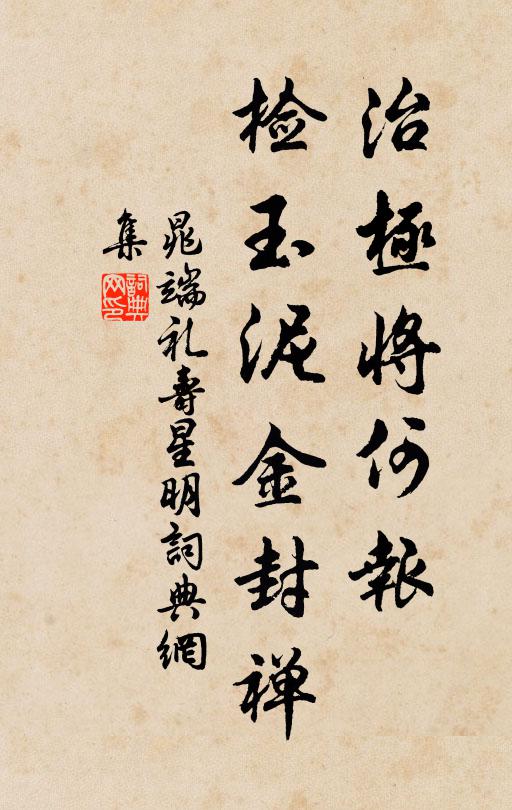 治極將何報
檢玉泥金封禅
晁端礼壽星明詞典網
集
詞典
网印